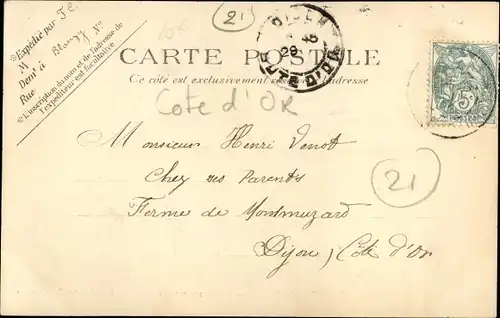 *Expédié par
M
Demt à Blangy
Rue N°
*L'inscription du nom et de l'adresse de
l'expéditeur est facultative
21
CARTE POSTALE
Ce côté est exclusivement à l'adresse
COTE D'OR
5c
Cote d'Or
Monsieur Henri Venot
Chez ses Parents
Ferme de Montmuzard
Dijon, Côte d'Or
21